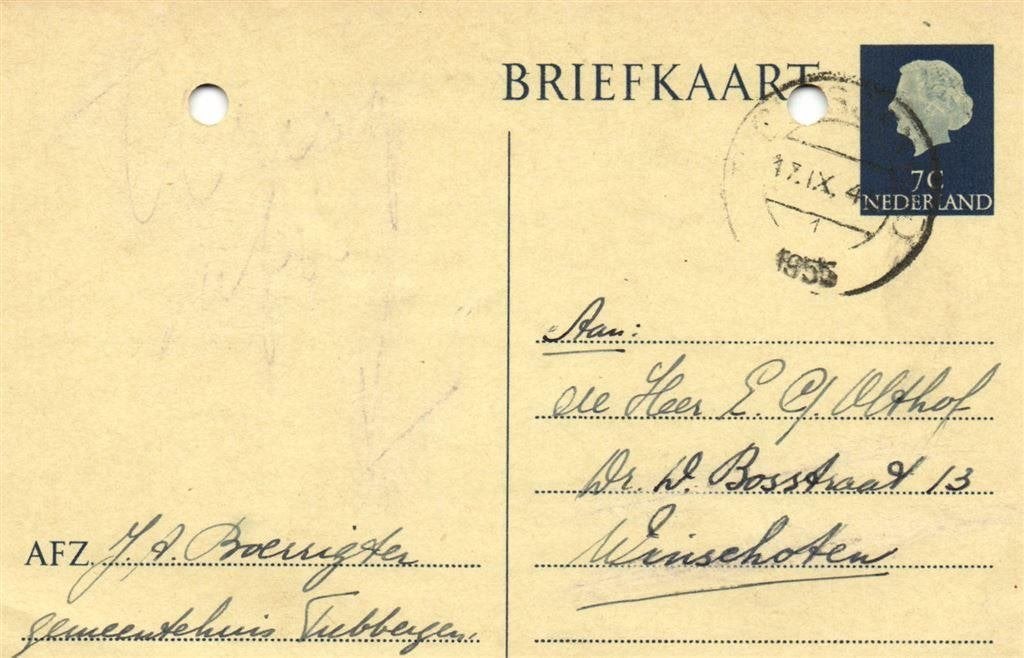 BRIEFKAART
7 C
NEDERLAND
17.IX. 4
1
1955
Aan:
de Heer E. Olthof
Dr. D. Bosstraat 13
Winschoten
AFZ J. A. Boerrigter
gemeentehuis Tubbergen.